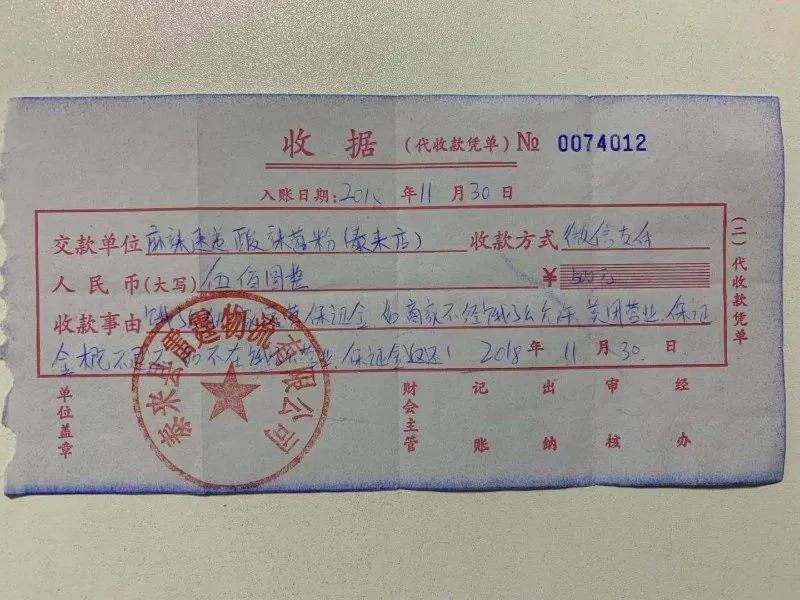 收据 (代收款凭单) № 0074012
入账日期:2018年11月30日
交款单位 麻辣 酸辣 粉(泰来店) 收款方式 微信支付
人民币(大写) 伍佰圆整 ¥ 500元
收款事由 饿了 保证金 如商家不经饿了么允许 美团营业 保证
金概不 不在 营业 保证金 2018年11月30日
单位盖章 财会主管 记账 出纳 审核 经办
(二)代收款凭单
泰来县 物流有限公司